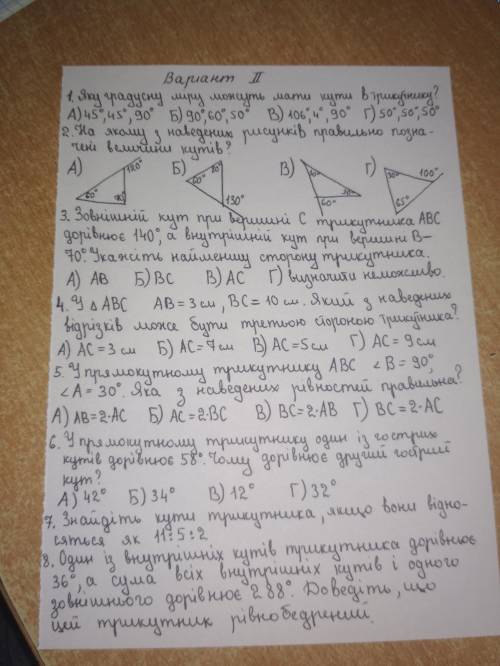 Варіант II
1. Яку градусну міру можуть мати кути в трикутнику?
А) 45°, 45°, 90° Б) 90°, 60°, 50° В) 106°, 4°, 90° Г) 50°, 50°, 50°
2. На якому з наведених рисунків правильно позна-
чені величини кутів?
А) Б) В) Г)
60° 150°
60° 130°
60°
100° 65°
3. Зовнішній кут при вершині С трикутника АВС
дорівнює 140°, а внутрішній кут при вершині В–
70°. Укажіть найменшу сторону трикутника.
А) АВ Б) ВС В) АС Г) визначити неможливо.
4. У △ АВС АВ = 3 см, ВС = 10 см. Який з наведених
відрізків може бути третьою стороною трикутника?
А) АС = 3 см Б) АС = 7 см В) АС = 5 см Г) АС = 9 см
5. У прямокутному трикутнику АВС ∠В = 90°,
∠А = 30°. Яка з наведених рівностей правильна?
А) АВ = 2·АС Б) АС = 2·ВС В) ВС = 2·АВ Г) ВС = 2·АС
6. У прямокутному трикутнику один із гострих
кутів дорівнює 58°. Чому дорівнює другий гострий
кут?
А) 42° Б) 34° В) 12° Г) 32°
7. Знайдіть кути трикутника, якщо вони відно-
сяться як 11:5:2
8. Один із внутрішніх кутів трикутника дорівнює
36°, а сума всіх внутрішніх кутів і одного
зовнішнього дорівнює 288°. Доведіть, що
цей трикутник рівнобедрений.